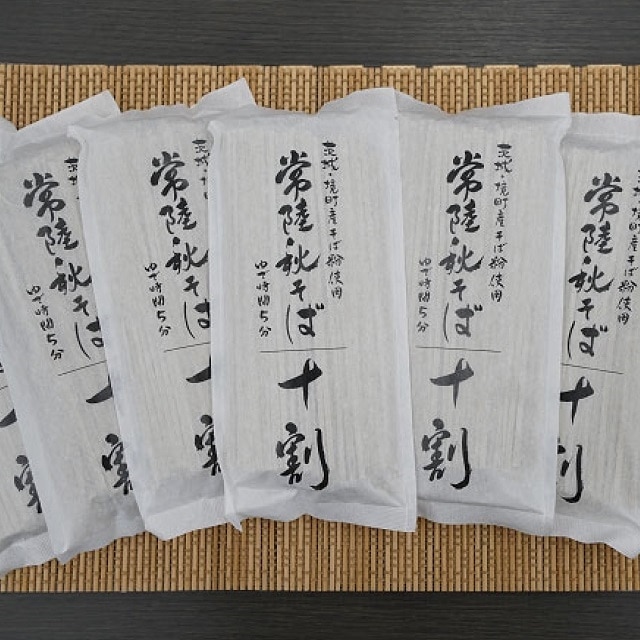 茨城・境町産そば粉使用
常陸・秋そば
ゆで時間5分
十割
茨城・境町産そば粉使用
常陸・秋そば
ゆで時間5分
十割
茨城・境町産そば粉使用
常陸・秋そば
十割
茨城・境
常陸・秋そば
ゆで時間5分
十割
茨
常陸・秋そば
ゆで時間5分
十割
十割